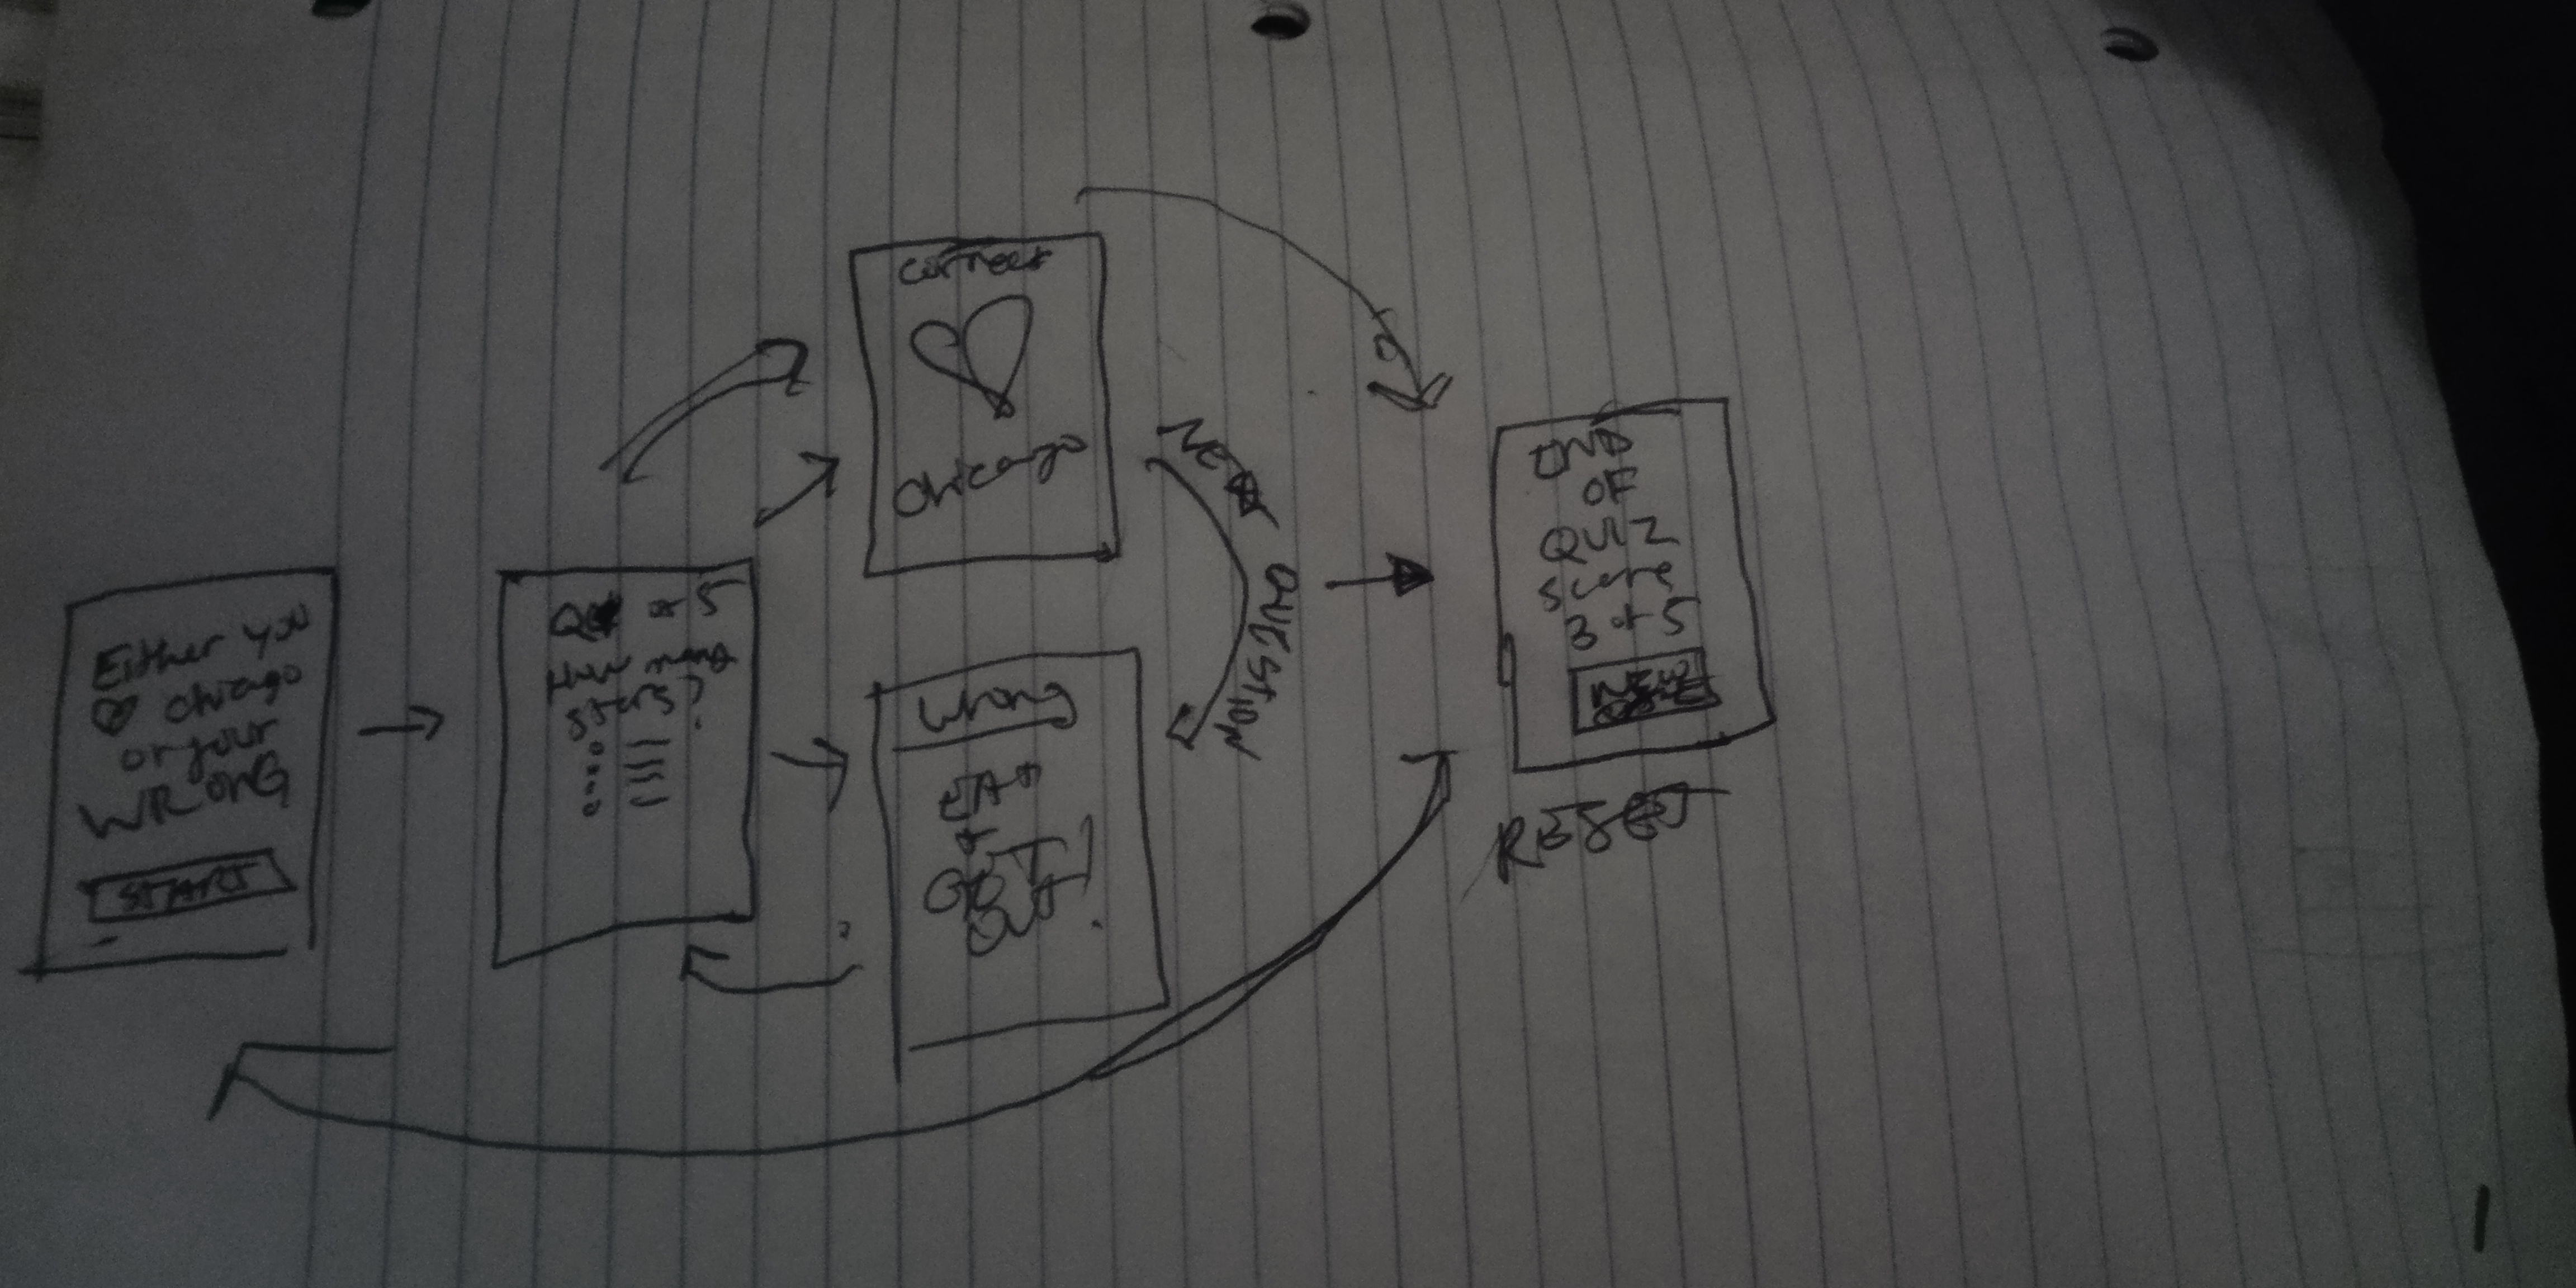 Either you
♡ chicago
or your
WRONG
START
Q of 5
How many
stars?
correct
Chicago
Wrong
GET
OUT!
NEXT QUESTION
END
OF
QUIZ
score
3 of 5
NEW
RESET